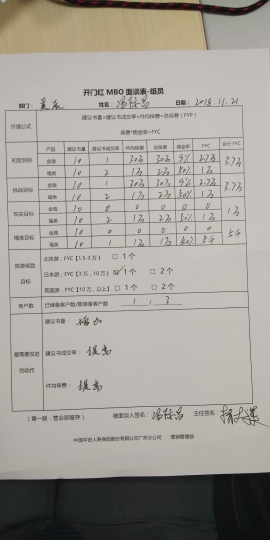 开门红 MBO 面谈表-组员
部门： 姓名： 日期：2018.11.21
价值公式 建议书量*建议书成交率*件均保费=总保费（FYP）
保费*佣金率=FYC
产品 建议书量 建议书成交率 件均保费 总保费 佣金率 FYC 合计 FYC
初定目标 金瑞 10 1 30万 30万 9% 2.7万 3.7万
福类 10 2 1万 2万 50% 1万
挑战目标 金瑞 10 1 30万 30万 9% 2.7万 3.7万
福类 10 2 1万 2万 50% 1万
现实目标 金瑞 10 0 0 0 0 0 1万
福类 10 2 1万 2万 50% 1万
精准目标 金瑞 10 0 0 0 0 0 5千
福类 10 1 1万 1万 50% 5千
旅游奖励目标 北京游，FYC【1.5-3万】 □ 1个
日本游，FYC【3万，10万】 ☑ 1个 □ 2个
英国游，FYC【10万，以上】 □ 1个 □ 2个
客户数 已储备客户数/需储备客户数 1 / 3
最需要改进的动作 建议书量： 增加
建议书成交率： 提高
件均保费： 提高
（第一联：营业部留存） 被面谈人签名： 主任签名：
中国平安人寿保险股份有限公司广东分公司 营销管理部